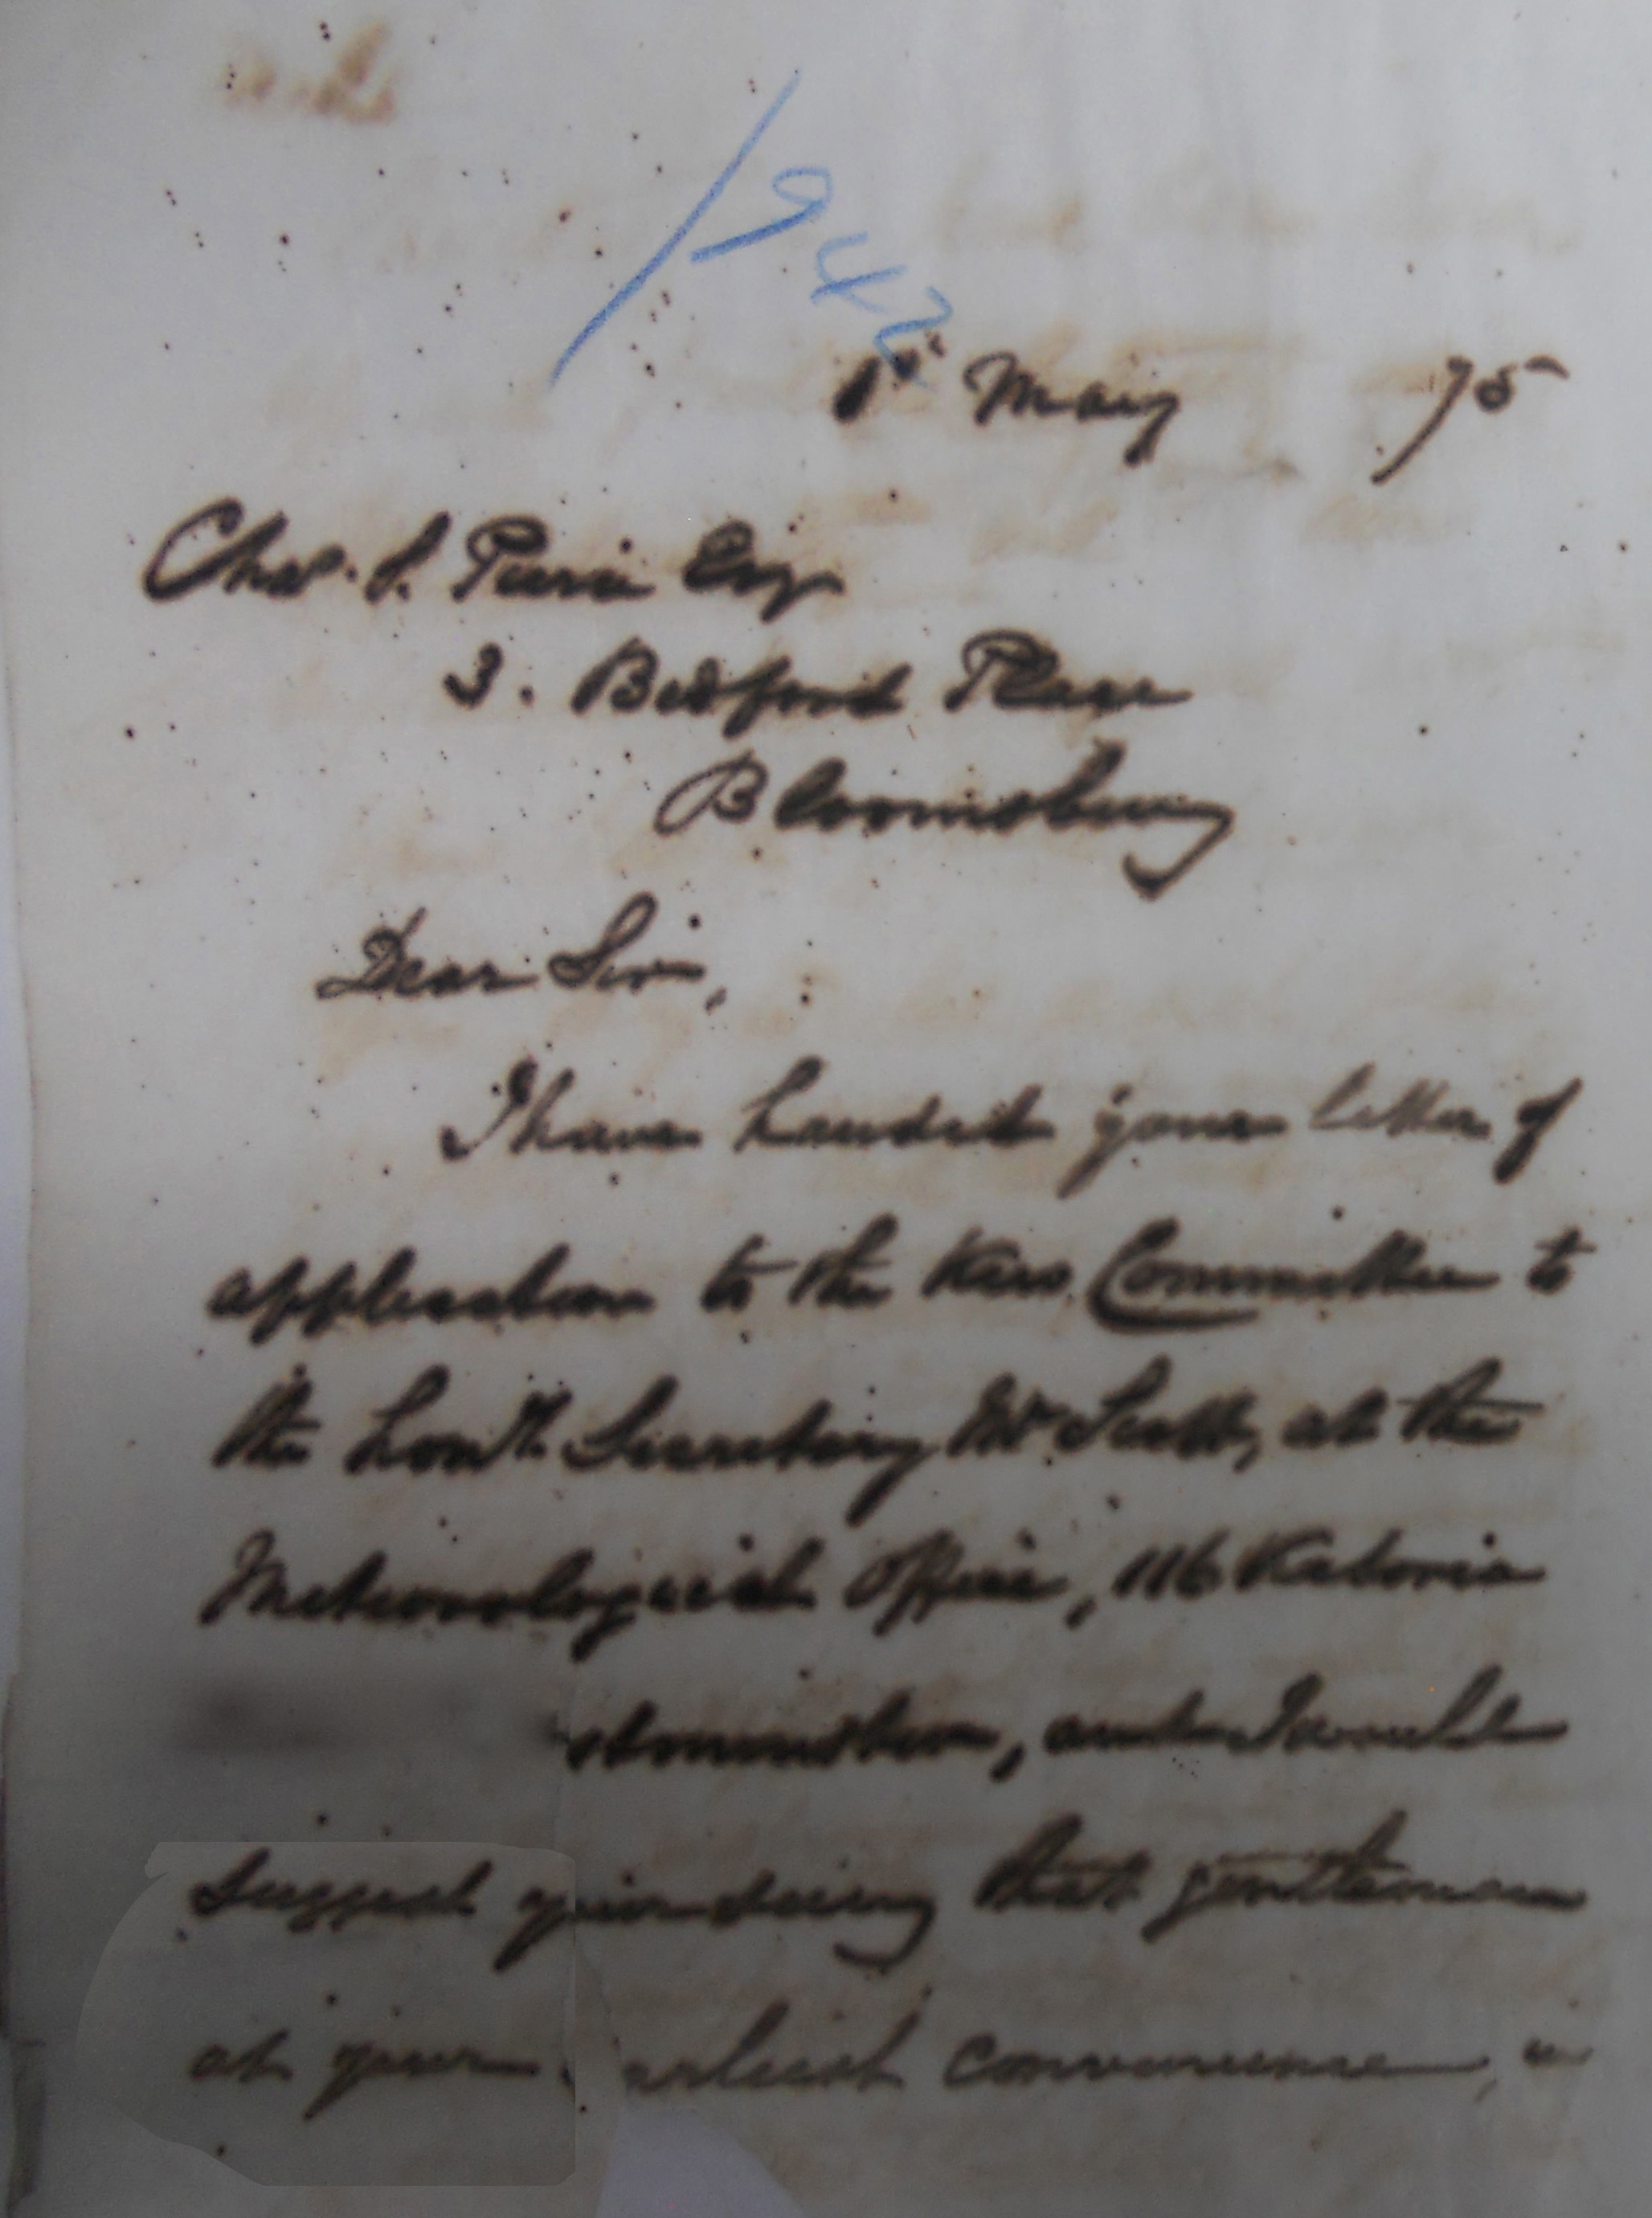 /942
1st May /75
Chas. S. Peirce Esq
3. Bedford Place
Bloomsbury
Dear Sir,
I have handed your letter of
application to the Kew Committee to
the Secretary Mr Scott, at the
Meteorological Office, 116 Victoria
and I would
suggest your seeing that gentleman
at your earliest convenience,